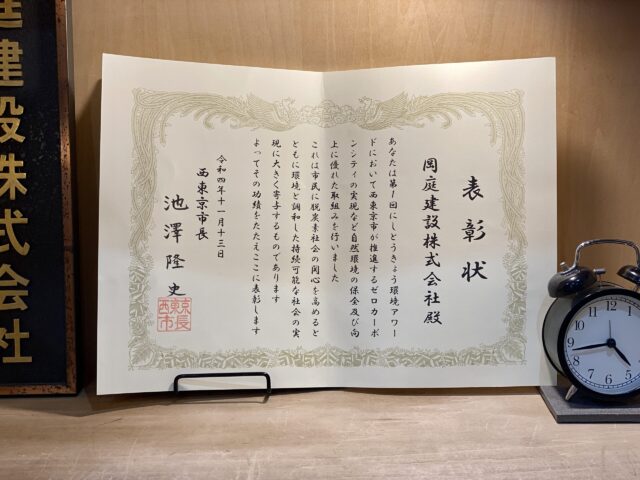 表彰状
岡庭建設株式会社殿
あなたは第1回にしとうきょう環境アワー
ドにおいて西東京市が推進するゼロカーボ
ンシティの実現など自然環境の保全及び向
上に優れた取組みを行いました
これは市民に脱炭素社会の関心を高めると
ともに環境と調和した持続可能な社会の実
現に大きく寄与するものであります
よってその功績をたたえここに表彰します
令和四年十一月十三日
西東京市長
池澤隆史
西東京市長
庭建設株式会社
12
1
2
3
4
5
6
7
8
9
10
11